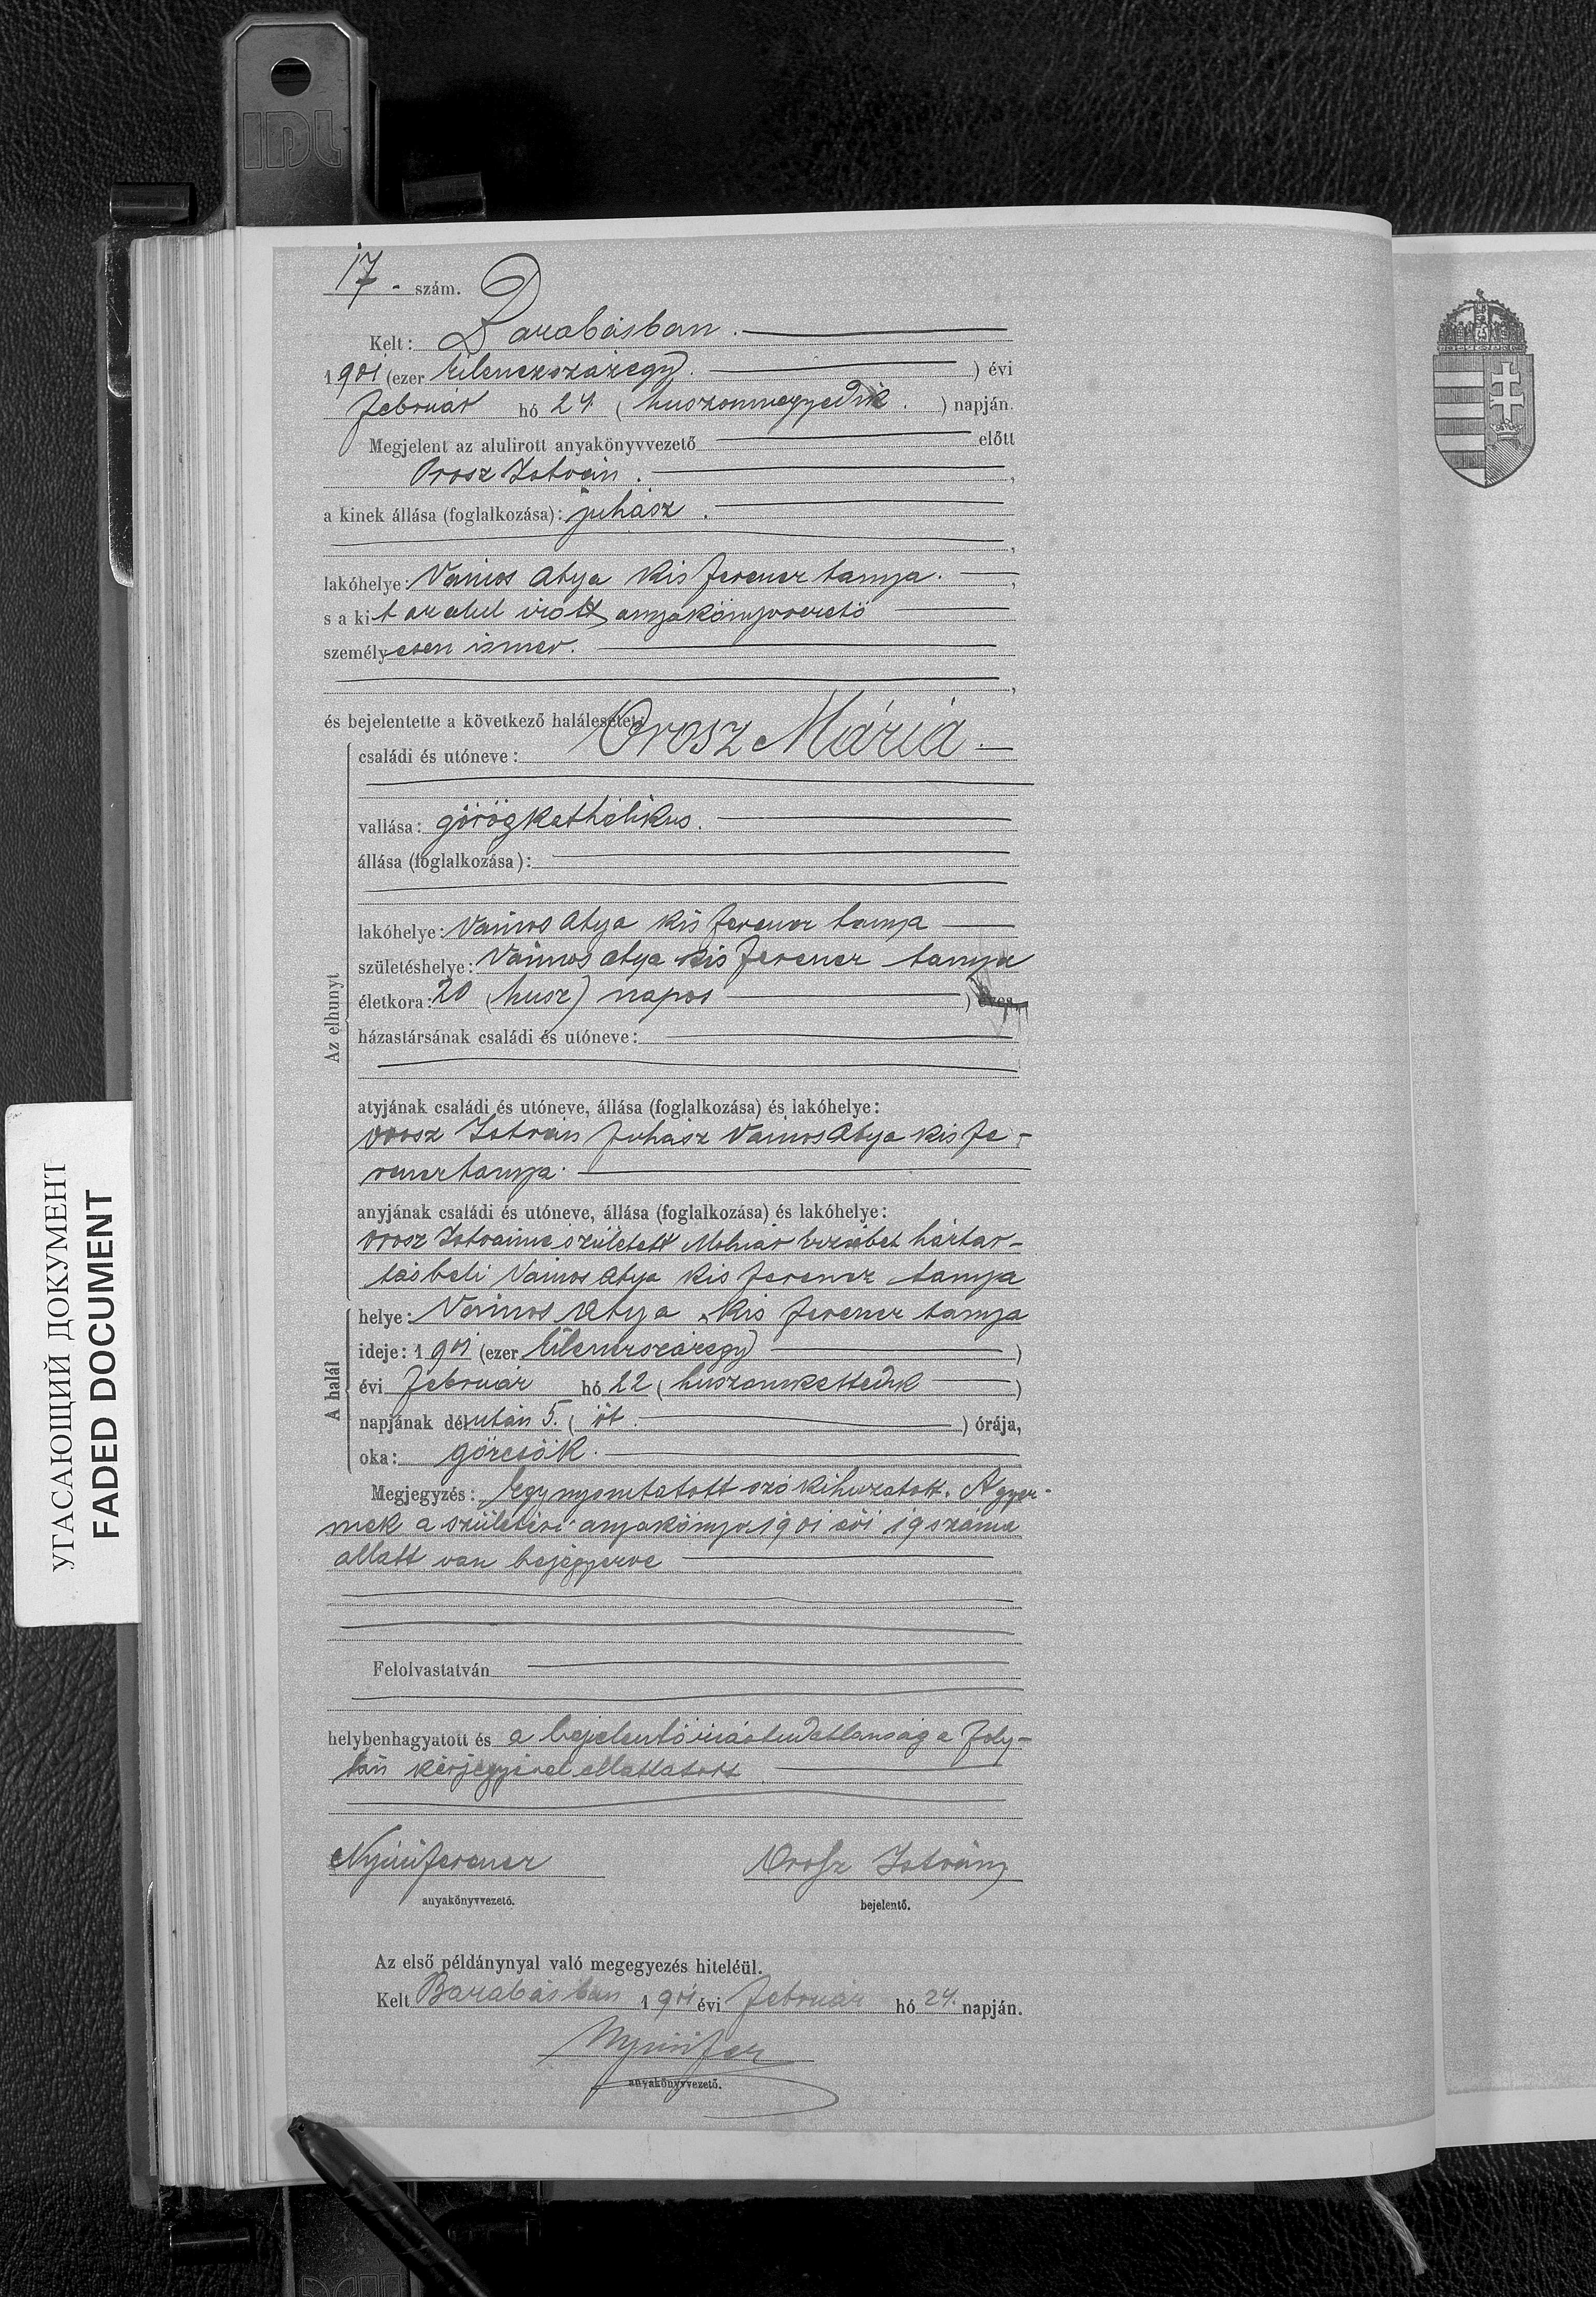 IDL
17 - szám.
Kelt: Barabásban.
1901 (ezer kilenczszázegy.) évi
február hó 24. (huszonnegyedik.) napján.
Megjelent az alulirott anyakönyvvezető előtt
Orosz István.,
a kinek állása (foglalkozása): juhász.
,
lakóhelye: Vámos Atya Kis Ferencz tanya.,
s a kit az alul irott anyakönyvvezető
személyesen ismer.
,
és bejelentette a következő halálesetet:
családi és utóneve: Orosz Mária.
vallása: görögkatholikus.
állása (foglalkozása):
lakóhelye: Vámos Atya Kis Ferencz tanya
születéshelye: Vámos Atya Kis Ferencz tanya
életkora: 20 (husz) napos ) éves,
házastársának családi és utóneve:
atyjának családi és utóneve, állása (foglalkozása) és lakóhelye:
Orosz István Juhász Vámos Atya Kis Fe-
rencz tanya.
anyjának családi és utóneve, állása (foglalkozása) és lakóhelye:
Orosz Istvánné született Molnár Erzsébet háztar-
tásbeli Vámos Atya Kis Ferencz tanya
Az elhunyt
helye: Vámos Atya Kis Ferencz tanya
ideje: 1901 (ezer kilenczszázegy)
évi február hó 22 (huszonkettedik)
napjának délután 5. (öt.) órája,
oka: görcsök.
A halál
Megjegyzés: Egy nyomtatott szó kihuzatott. A gyer-
mek a születési anyakönyv 1901 évi 19 száma
allatt van bejegyezve
Felolvastatván
helybenhagyatott és a bejelentő irástudatlansága foly-
tán kézjegyével ellattatott.
Nyiri Ferencz
anyakönyvvezető.
Orosz István
bejelentő.
Az első példánynyal való megegyezés hiteléül.
Kelt Barabásban 1901 évi február hó 24. napján.
Nyiri Fer
anyakönyvvezető.
УГАСАЮЩИЙ ДОКУМЕНТ
FADED DOCUMENT